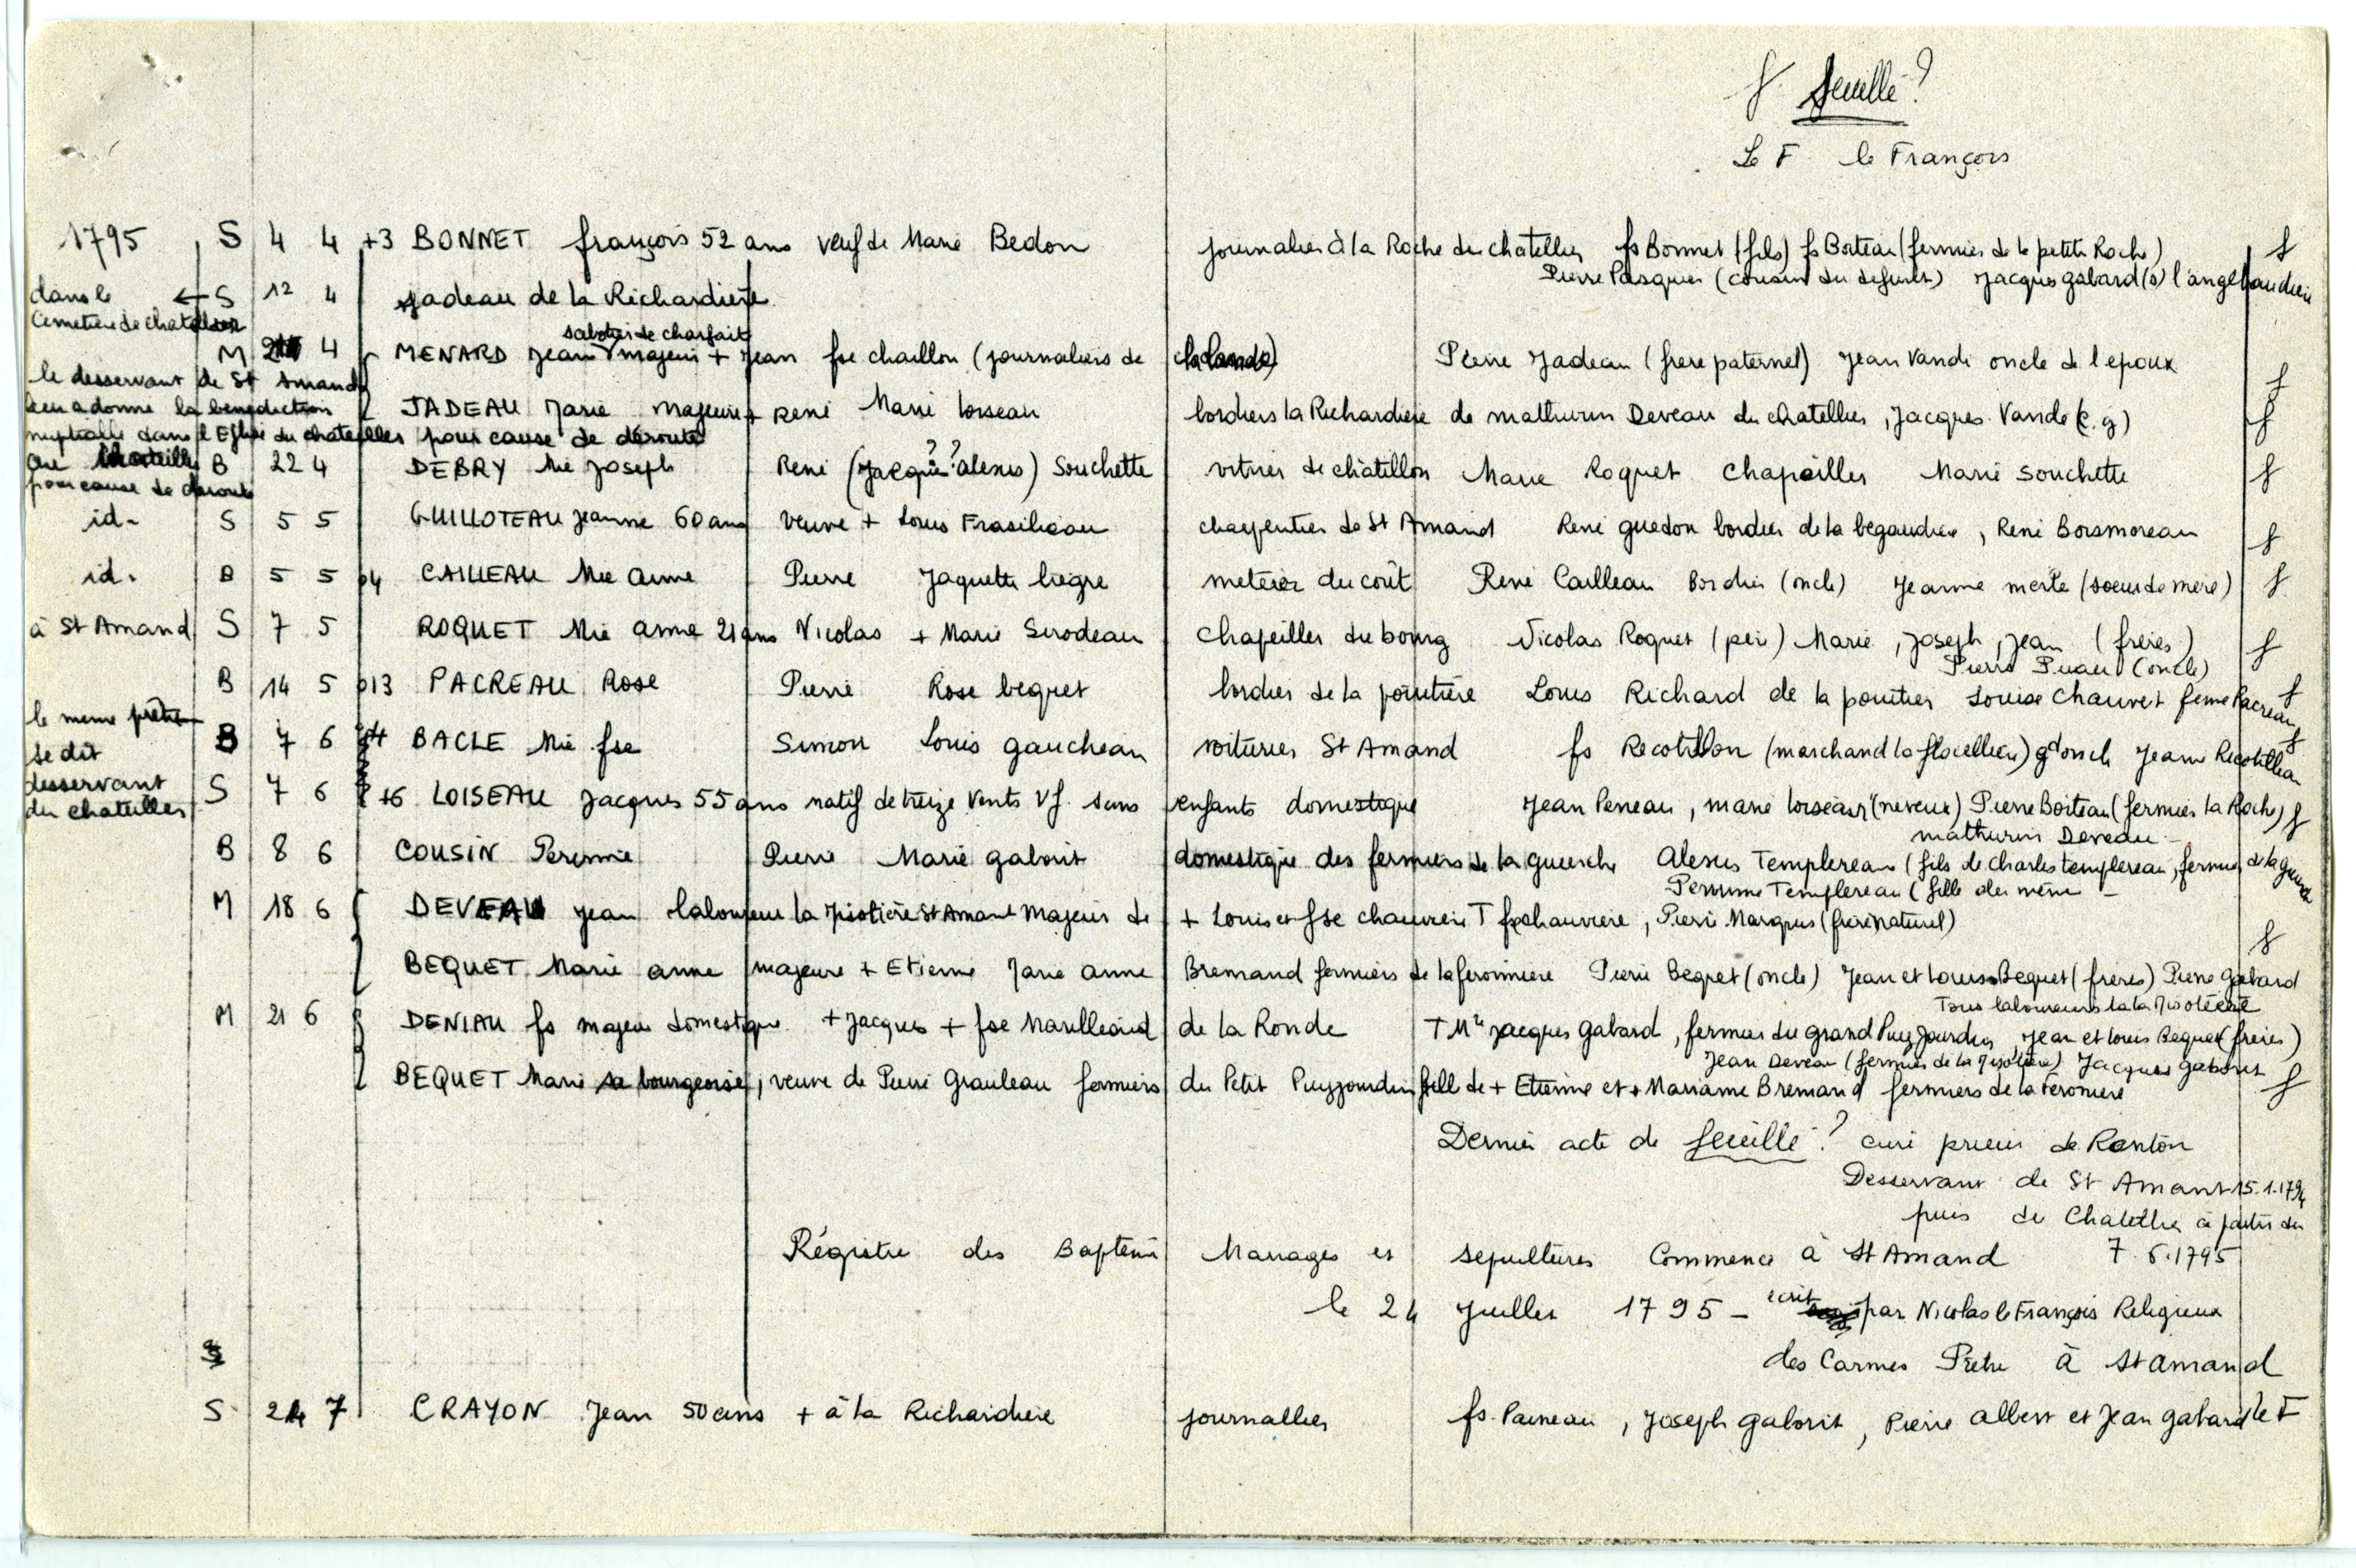 f. feuille ?
Le F le François
1795 S 4 4 +3 BONNET françois 52 ans veuf de Marie Bedon journalier à la Roche du chatellier fs Bonnet (fils) fs Boiteau (fermier de la petite Roche) f
Pierre Pasquier (cousin du defunt) Jacques gabard (o) l'angelaudiere
dans le ← S 12 4 Jadeau de la Richardiere
Cemetiere de chatellier
sabotier de charfait
M 4 MENARD Jean majeur + Jean fse chaillon (journaliers de la lande) Pierre Jadeau (frere paternel) Jean Vande oncle de l'epoux f
le desservant de St Amand
leur a donne la benediction JADEAU Marie majeure + René Marie loiseau bordiers la Richardiere de mathurin Deveau du chatellier, Jacques Vande (c.g) f
nuptialle dans l'Eglise du chateilles pour cause de deroute
B 22 4 DEBRY Mie Joseph René (Jacques? alexis?) Souchette vitrier de châtillon Marie Roquet Chapeiller Marie Souchette f
pour cause de deroute
id. S 5 5 GUILLOTEAU Jeanne 60 ans veuve + Louis Frasileau charpentier de St Amand René guedon bordier de la begaudiere, René Boismoreau f
id. B 5 5 o4 CAILLEAU Mie anne Pierre Jaquette liegre meteier du coût René Cailleau Bordier (oncle) Jeanne merle (soeur de mere) f
à St Amand S 7 5 ROQUET Mie anne 21 ans Nicolas + Marie Serodeau Chapeiller du bourg Nicolas Roquet (peré) Marie, Joseph, Jean (freres) f
Pierre Puau (oncle)
B 14 5 o13 PACREAU Rose Pierre Rose bequet bordier de la pointiere Louis Richard de la pointier Louise Chauvet feme Pacreau f
le meme prêtre
B 7 6 BACLE Mie fse Simon Louis gaucheau voiturier St Amand fs Recotillon (marchand la flocelliere) gd oncle Jeanne Recotilleau f
se dit
desservant S 7 6 +6 LOISEAU Jacques 55 ans natif de treize vents vf. sans enfants domestique Jean Peneau, marie loiseau (neveux) Pierre Boiteau (fermier la Roche) f
du chateilles
mathurin Deveau
B 8 6 COUSIN Perrine Pierre Marie gaborit domestique des fermiers de la guerche Alexis Templereau (fils de charles templereau, fermier de la guerche
Perrine Templereau (fille du meme
M 18 6 DEVEAU Jean laboureur la Misotiere St Amant majeur de + Louis et fse chauviere T fs chauviere, Pierre Marquis (frere naturel)
f
BEQUET Marie anne majeure + Etienne Marie anne Bremand fermiers de la feronniere Pierre Beqret (oncle) Jean et Louis Bequet (freres) Pierre gabard
Tous laboureurs la la Misotiere
M 21 6 DENIAU fs majeur domestique + Jacques + fse Marilleaud de la Ronde T Me Jacques Gabard, fermier du grand Puyjourdin, Jean et Louis Bequet (freres)
Jean Deveau (fermier de la Misotiere) Jacques gaborit
BEQUET Marie sa bourgeoise, veuve de Pierre Grauleau fermiers du Petit Puyjourdin fille de + Etienne et + Marianne Bremand fermiers de la Feroniere f
Dernier acte de feuille ? curé prieur de Ranton
Desservant de St Amant 15.1.1794
puis de Chatellier à partir du
Régistre des Baptemes Mariages et sepultures Commencé à St Amand 7.6.1795
le 24 Juillet 1795 - ecrit par Nicolas le François Religieux
des Carmes Prêtre à St amand
S 24 7 CRAYON Jean 50 ans + à la Richardiere journallier fs. Paineau, Joseph gaborit, Pierre albert et Jean gabard le F